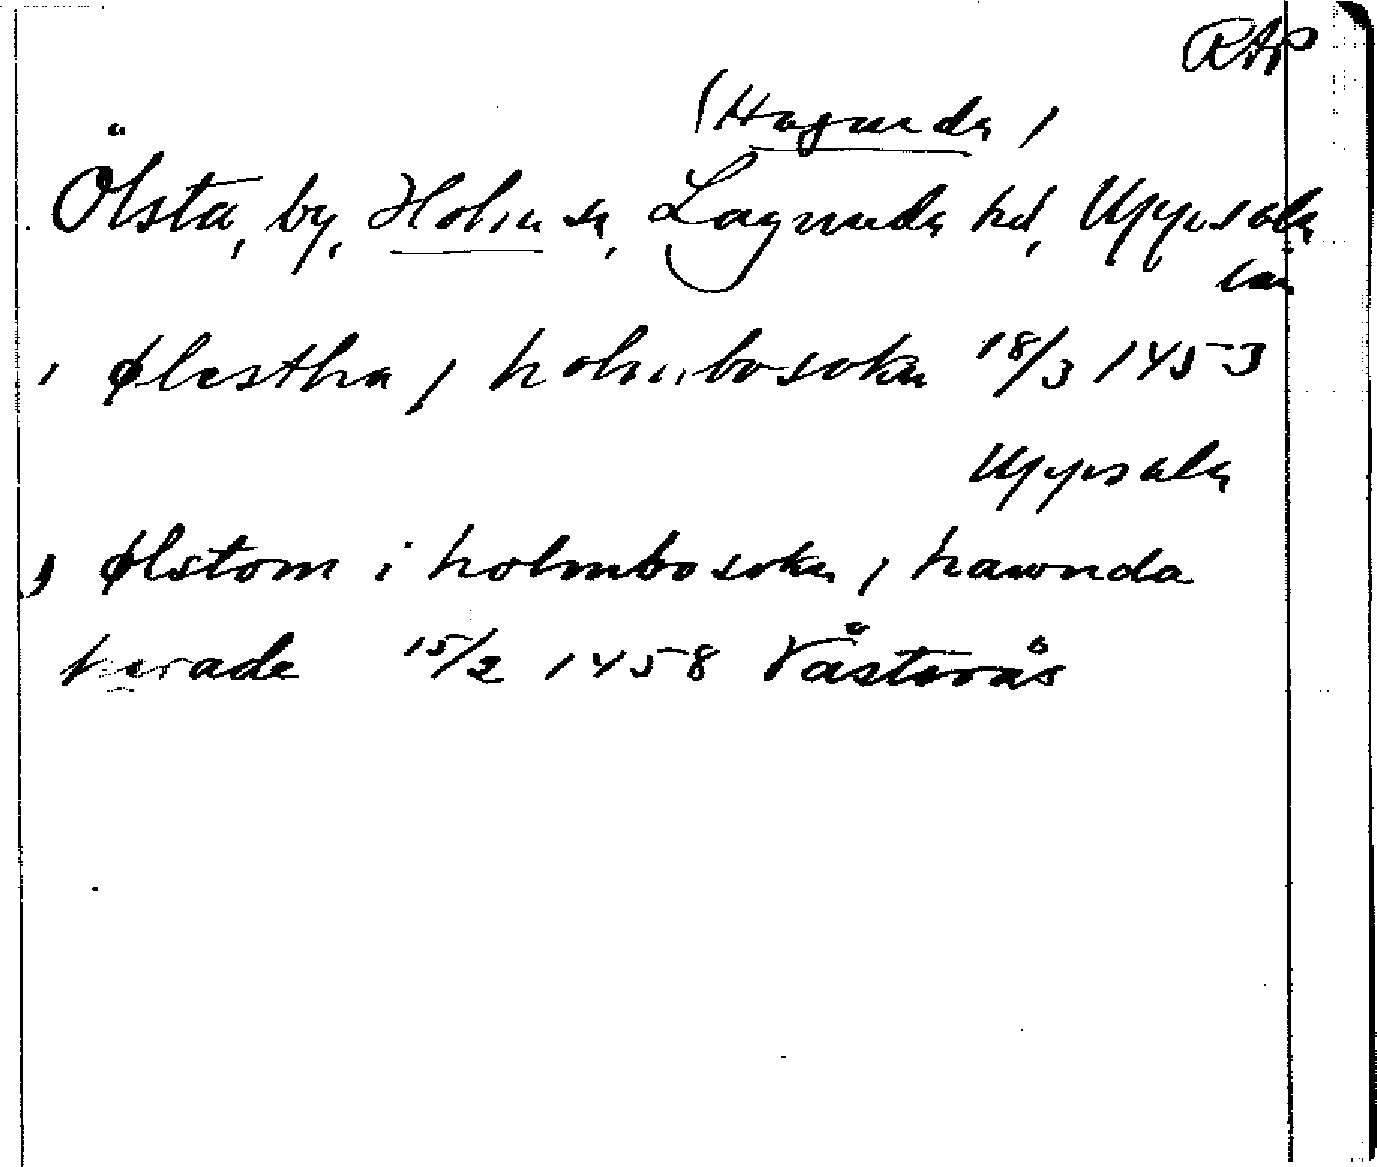 RAP
(Hagunda)
Ölsta, by, Holm sn, Lagunda hd, Uppsala
län
, Ølestha, holmbosokn 18/3 1453
Uppsala
, Ølstom i holmbosokn, hawnda
herade 15/2 1458 Västerås